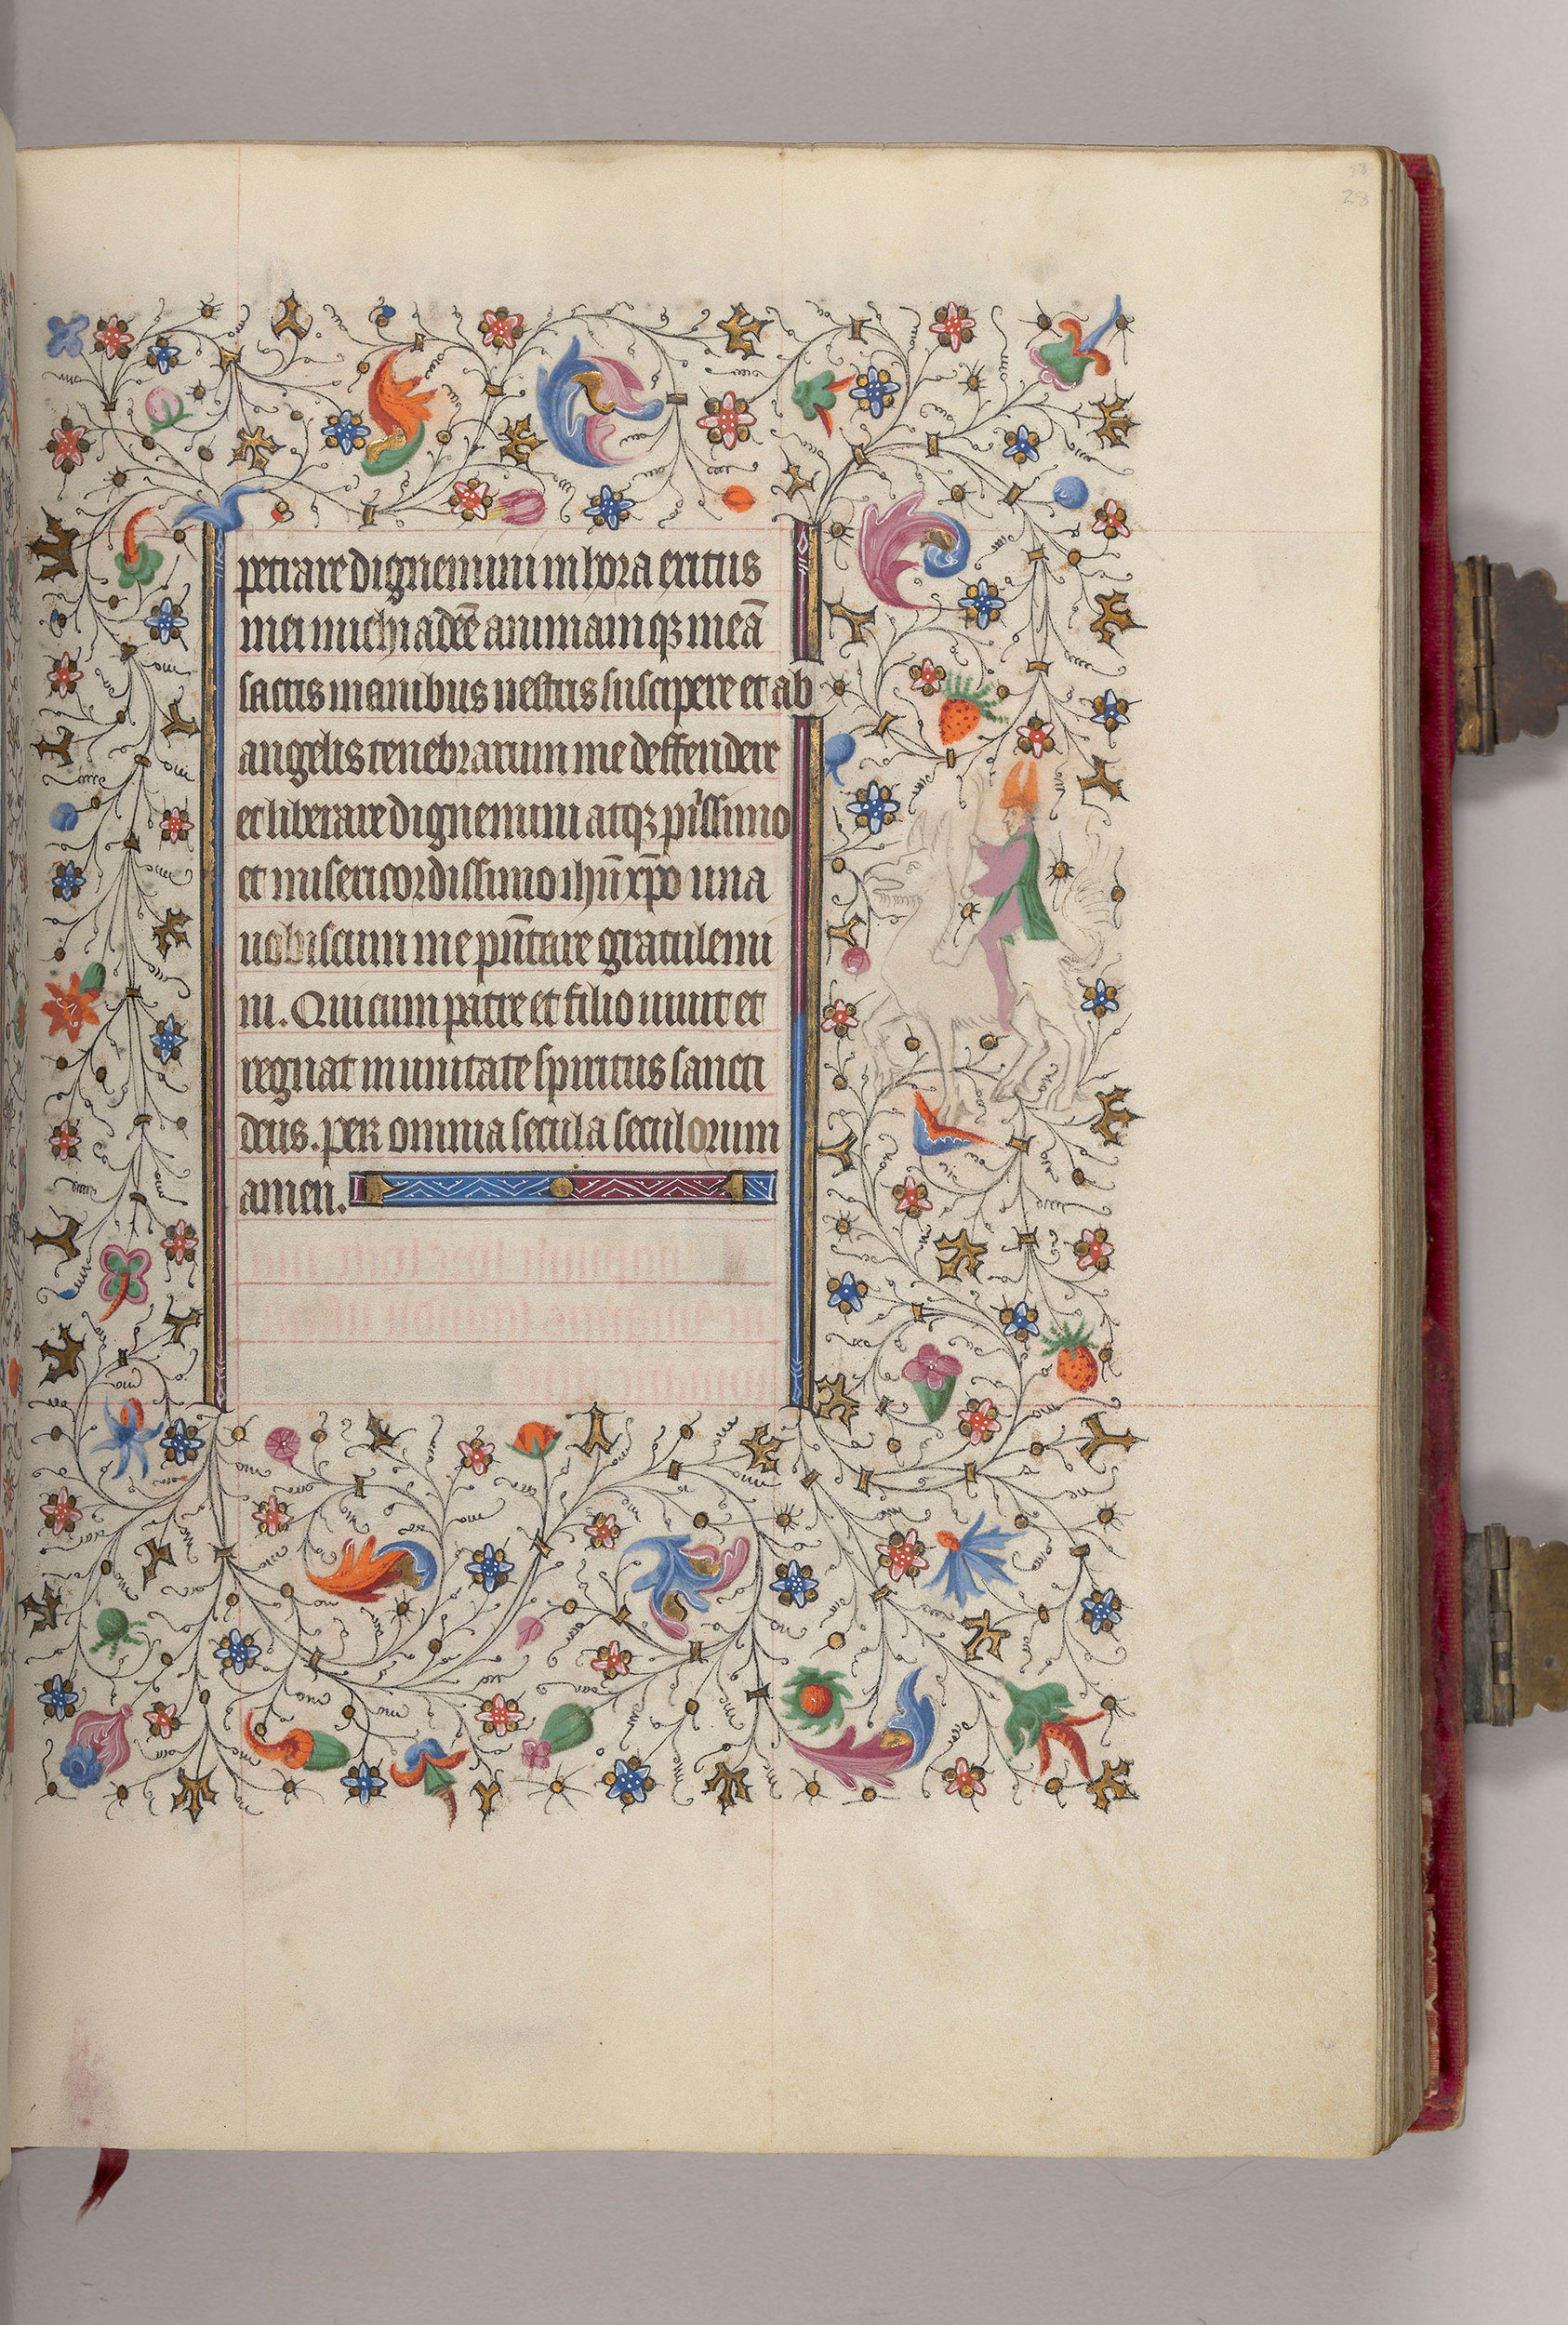 28
petrare dignemini in hora exitus
mei michi adeē animamqꝫ meā
sactis manibus uestris suscipere et ab
angelis tenebrarum me deffendere
et liberare dignemini atqꝫ piissimo
et misericordissimo ihū xp̄o una
uobiscum me pn̄tare gratulemi
ni. Qui cum patre et filio uiuit et
regnat in unitate spiritus sancti
deus. per omnia secula seculorum
amen.